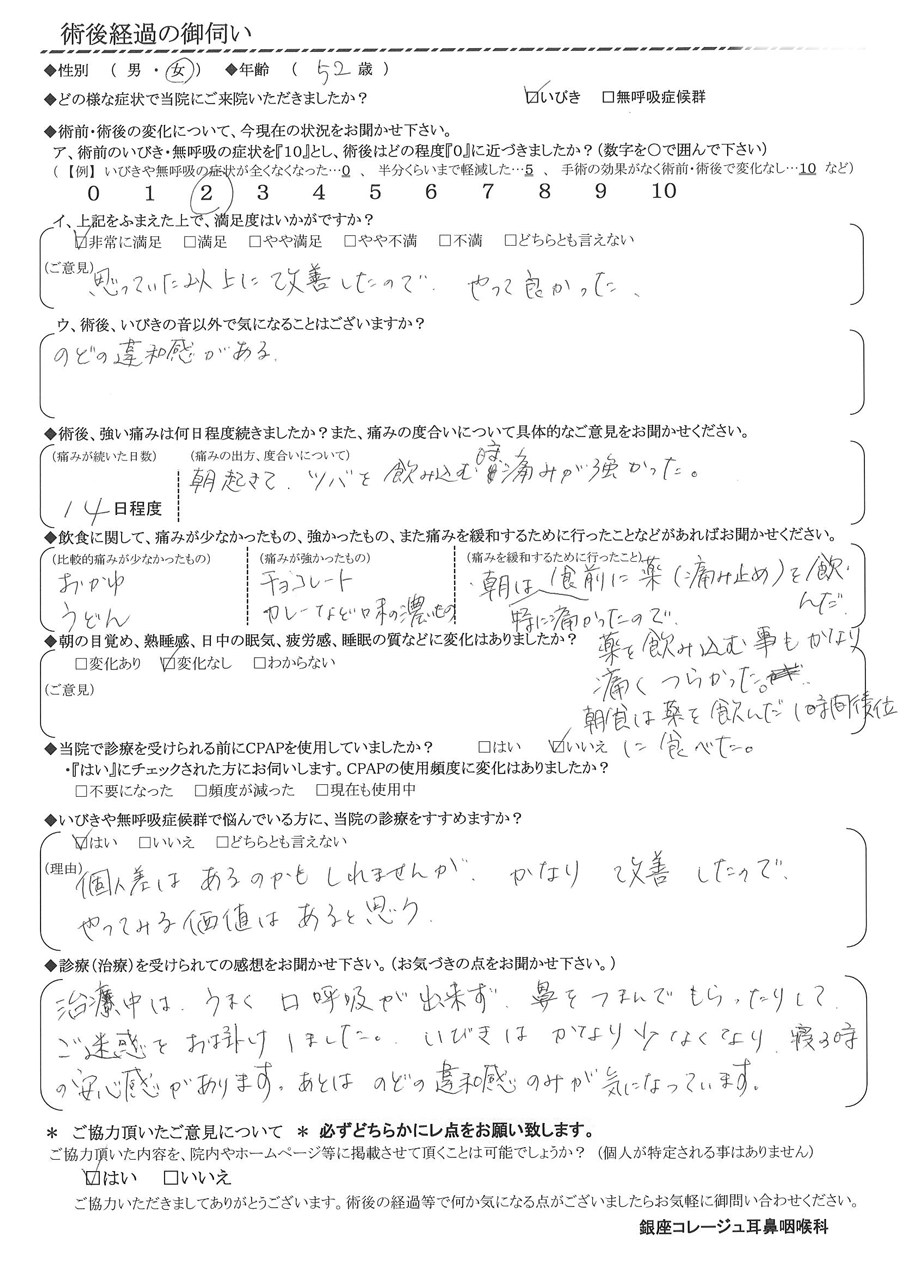 術後経過の御伺い
◆性別 ( 男 ・ 女 ) ◆年齢 ( 52 歳 )
◆どの様な症状で当院にご来院いただきましたか? ☑いびき □無呼吸症候群
◆術前・術後の変化について、今現在の状況をお聞かせ下さい。
ア、術前のいびき・無呼吸の症状を『10』とし、術後はどの程度『0』に近づきましたか?(数字を○で囲んで下さい)
(【例】 いびきや無呼吸の症状が全くなくなった…0 、 半分くらいまで軽減した…5 、 手術の効果がなく術前・術後で変化なし…10 など)
0 1 2 3 4 5 6 7 8 9 10
イ、上記をふまえた上で、満足度はいかがですか?
☑非常に満足 □満足 □やや満足 □やや不満 □不満 □どちらとも言えない
(ご意見) 思っていた以上に改善したので、やって良かった、
ウ、術後、いびきの音以外で気になることはございますか?
のどの違和感がある。
◆術後、強い痛みは何日程度続きましたか?また、痛みの度合いについて具体的なご意見をお聞かせください。
(痛みが続いた日数) (痛みの出方、度合いについて)
14 日程度 朝起きて、ツバを飲み込む時痛みが強かった。
◆飲食に関して、痛みが少なかったもの、強かったもの、また痛みを緩和するために行ったことなどがあればお聞かせください。
(比較的痛みが少なかったもの) (痛みが強かったもの) (痛みを緩和するために行ったこと)
おかゆ
うどん
チョコレート
カレーなど味の濃いもの
・朝は食前に薬(痛み止め)を飲んだ。
特に痛かったので、
薬を飲み込む事もかなり
痛くつらかった。
朝食は薬を飲んだ1時間後位
に食べた。
◆朝の目覚め、熟睡感、日中の眠気、疲労感、睡眠の質などに変化はありましたか?
□変化あり ☑変化なし □わからない
(ご意見)
◆当院で診療を受けられる前にCPAPを使用していましたか? □はい ☑いいえ
・『はい』にチェックされた方にお伺いします。CPAPの使用頻度に変化はありましたか?
□不要になった □頻度が減った □現在も使用中
◆いびきや無呼吸症候群で悩んでいる方に、当院の診療をすすめますか?
☑はい □いいえ □どちらとも言えない
(理由) 個人差はあるのかもしれませんが、かなり改善したので、
やってみる価値はあると思う。
◆診療(治療)を受けられての感想をお聞かせ下さい。(お気づきの点をお聞かせ下さい。)
治療中は、うまく口呼吸が出来ず、鼻をつまんでもらったりして、
ご迷惑をお掛けしました。いびきはかなり少なくなり、寝る時
の安心感があります。あとはのどの違和感のみが気になっています。
＊ ご協力頂いたご意見について ＊ 必ずどちらかにレ点をお願い致します。
ご協力頂いた内容を、院内やホームページ等に掲載させて頂くことは可能でしょうか? (個人が特定される事はありません)
☑はい □いいえ
ご協力いただきましてありがとうございます。術後の経過等で何か気になる点がございましたらお気軽に御問い合わせください。
銀座コレージュ耳鼻咽喉科